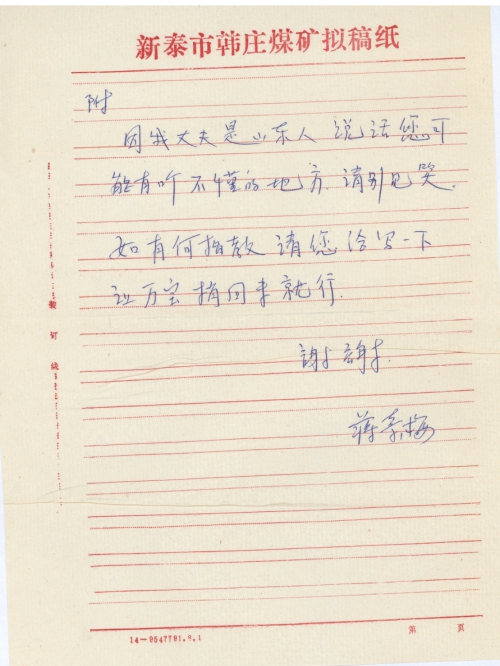 新泰市韩庄煤矿拟稿纸
附
因我丈夫是山东人 说话您可
能有听不懂的地方.请别见笑.
如有何指教 请您给写一下
让万宝捎回来就行.
谢谢.
蒋秀梅
装订线
14—9547791.8.1
第 页